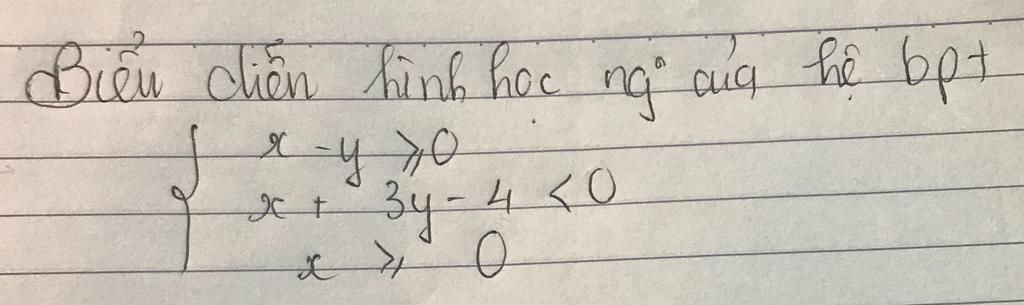 Biểu diễn hình học ng° của hệ bpt
x - y ⩾ 0
x + 3y - 4 < 0
x ⩾ 0